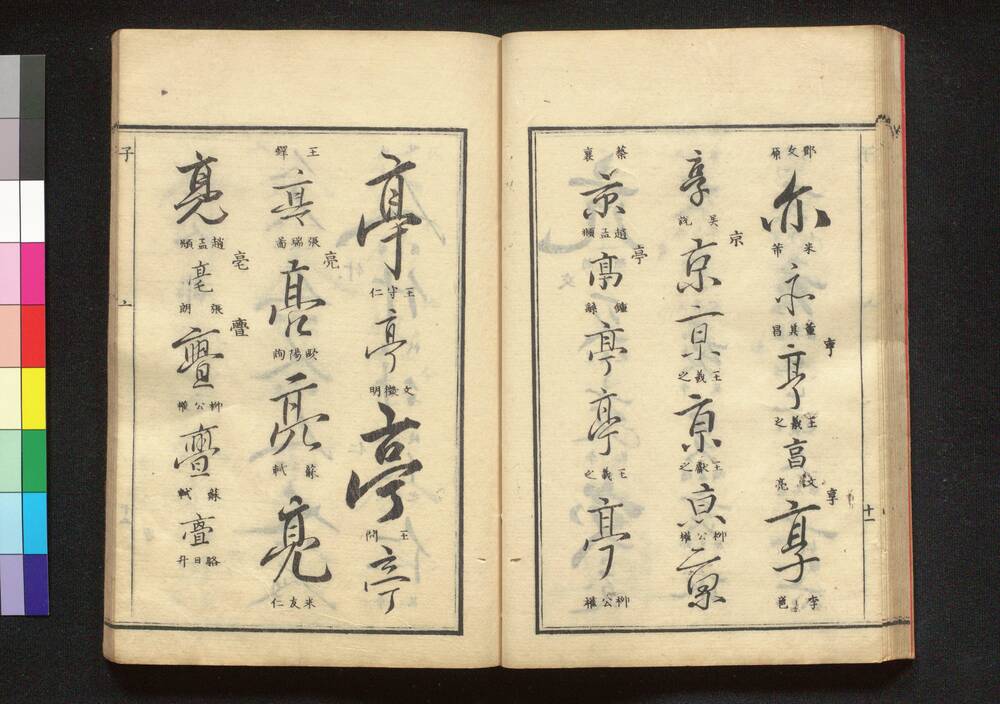 十一
鄧文原
亦
米芾
亦
董其昌
亨
亨
王羲之
享
享
享
李邕
享
吳說
京
京
京
王羲之
京
王獻之
京
柳公權
京
蔡襄
京
趙孟頫
亭
亭
鍾繇
亭
亭
王羲之
亭
柳公權
亭
王守仁
亭
文徵明
亭
王問
亭
王鐸
亭
張瑞圖
亮
亮
歐陽詢
亮
蘇軾
亮
米友仁
亮
趙孟頫
亳
亳
張朗
亹
亹
柳公權
亹
蘇軾
亹
駱日升
子
亠